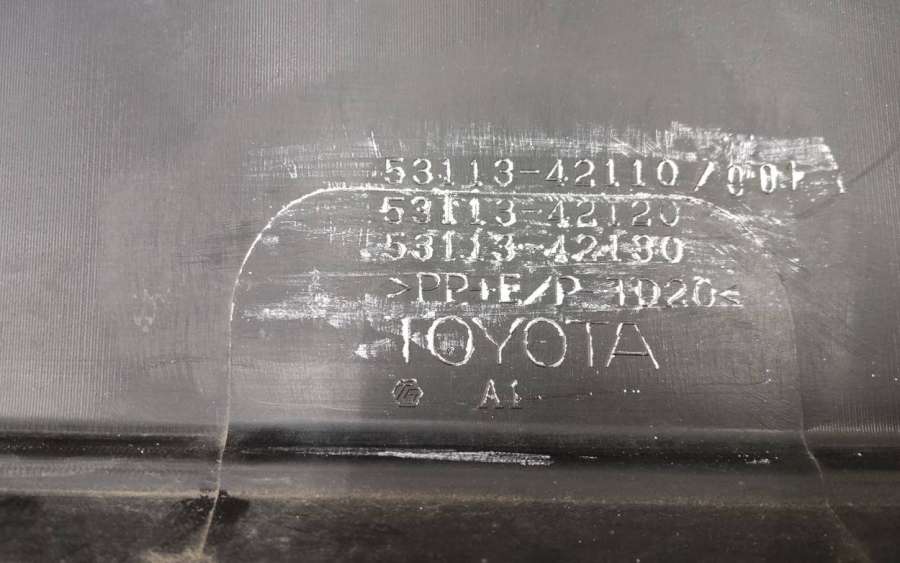 53113-42110/001
53113-42120
53113-42130
>PP+E/P-TD20<
TOYOTA
A1